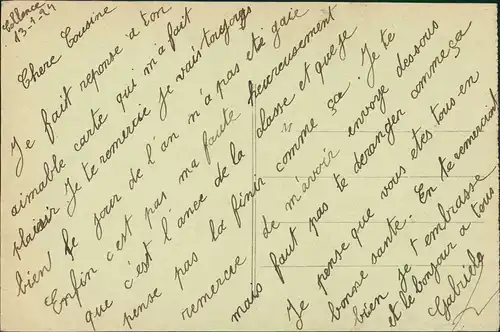 13-1-24
Chere Cousine
Je fait reponse a ton
aimable carte qui m'a fait
plaisir Je te remercie je vais toujours
bien le jour de l'an n'a pas ete gaie
Enfin c'est pas ma faute heureusement
que c'est l'ance de la classe et que je
pense pas la finir comme sa. Je te
remercie de m'avoir envoye dessous
mais faut pas te deranger comme sa
Je pense que vous etes tous en
bonne sante. En te remerciant
bien je t'embrasse
et le bonjour a tous
Gabriele